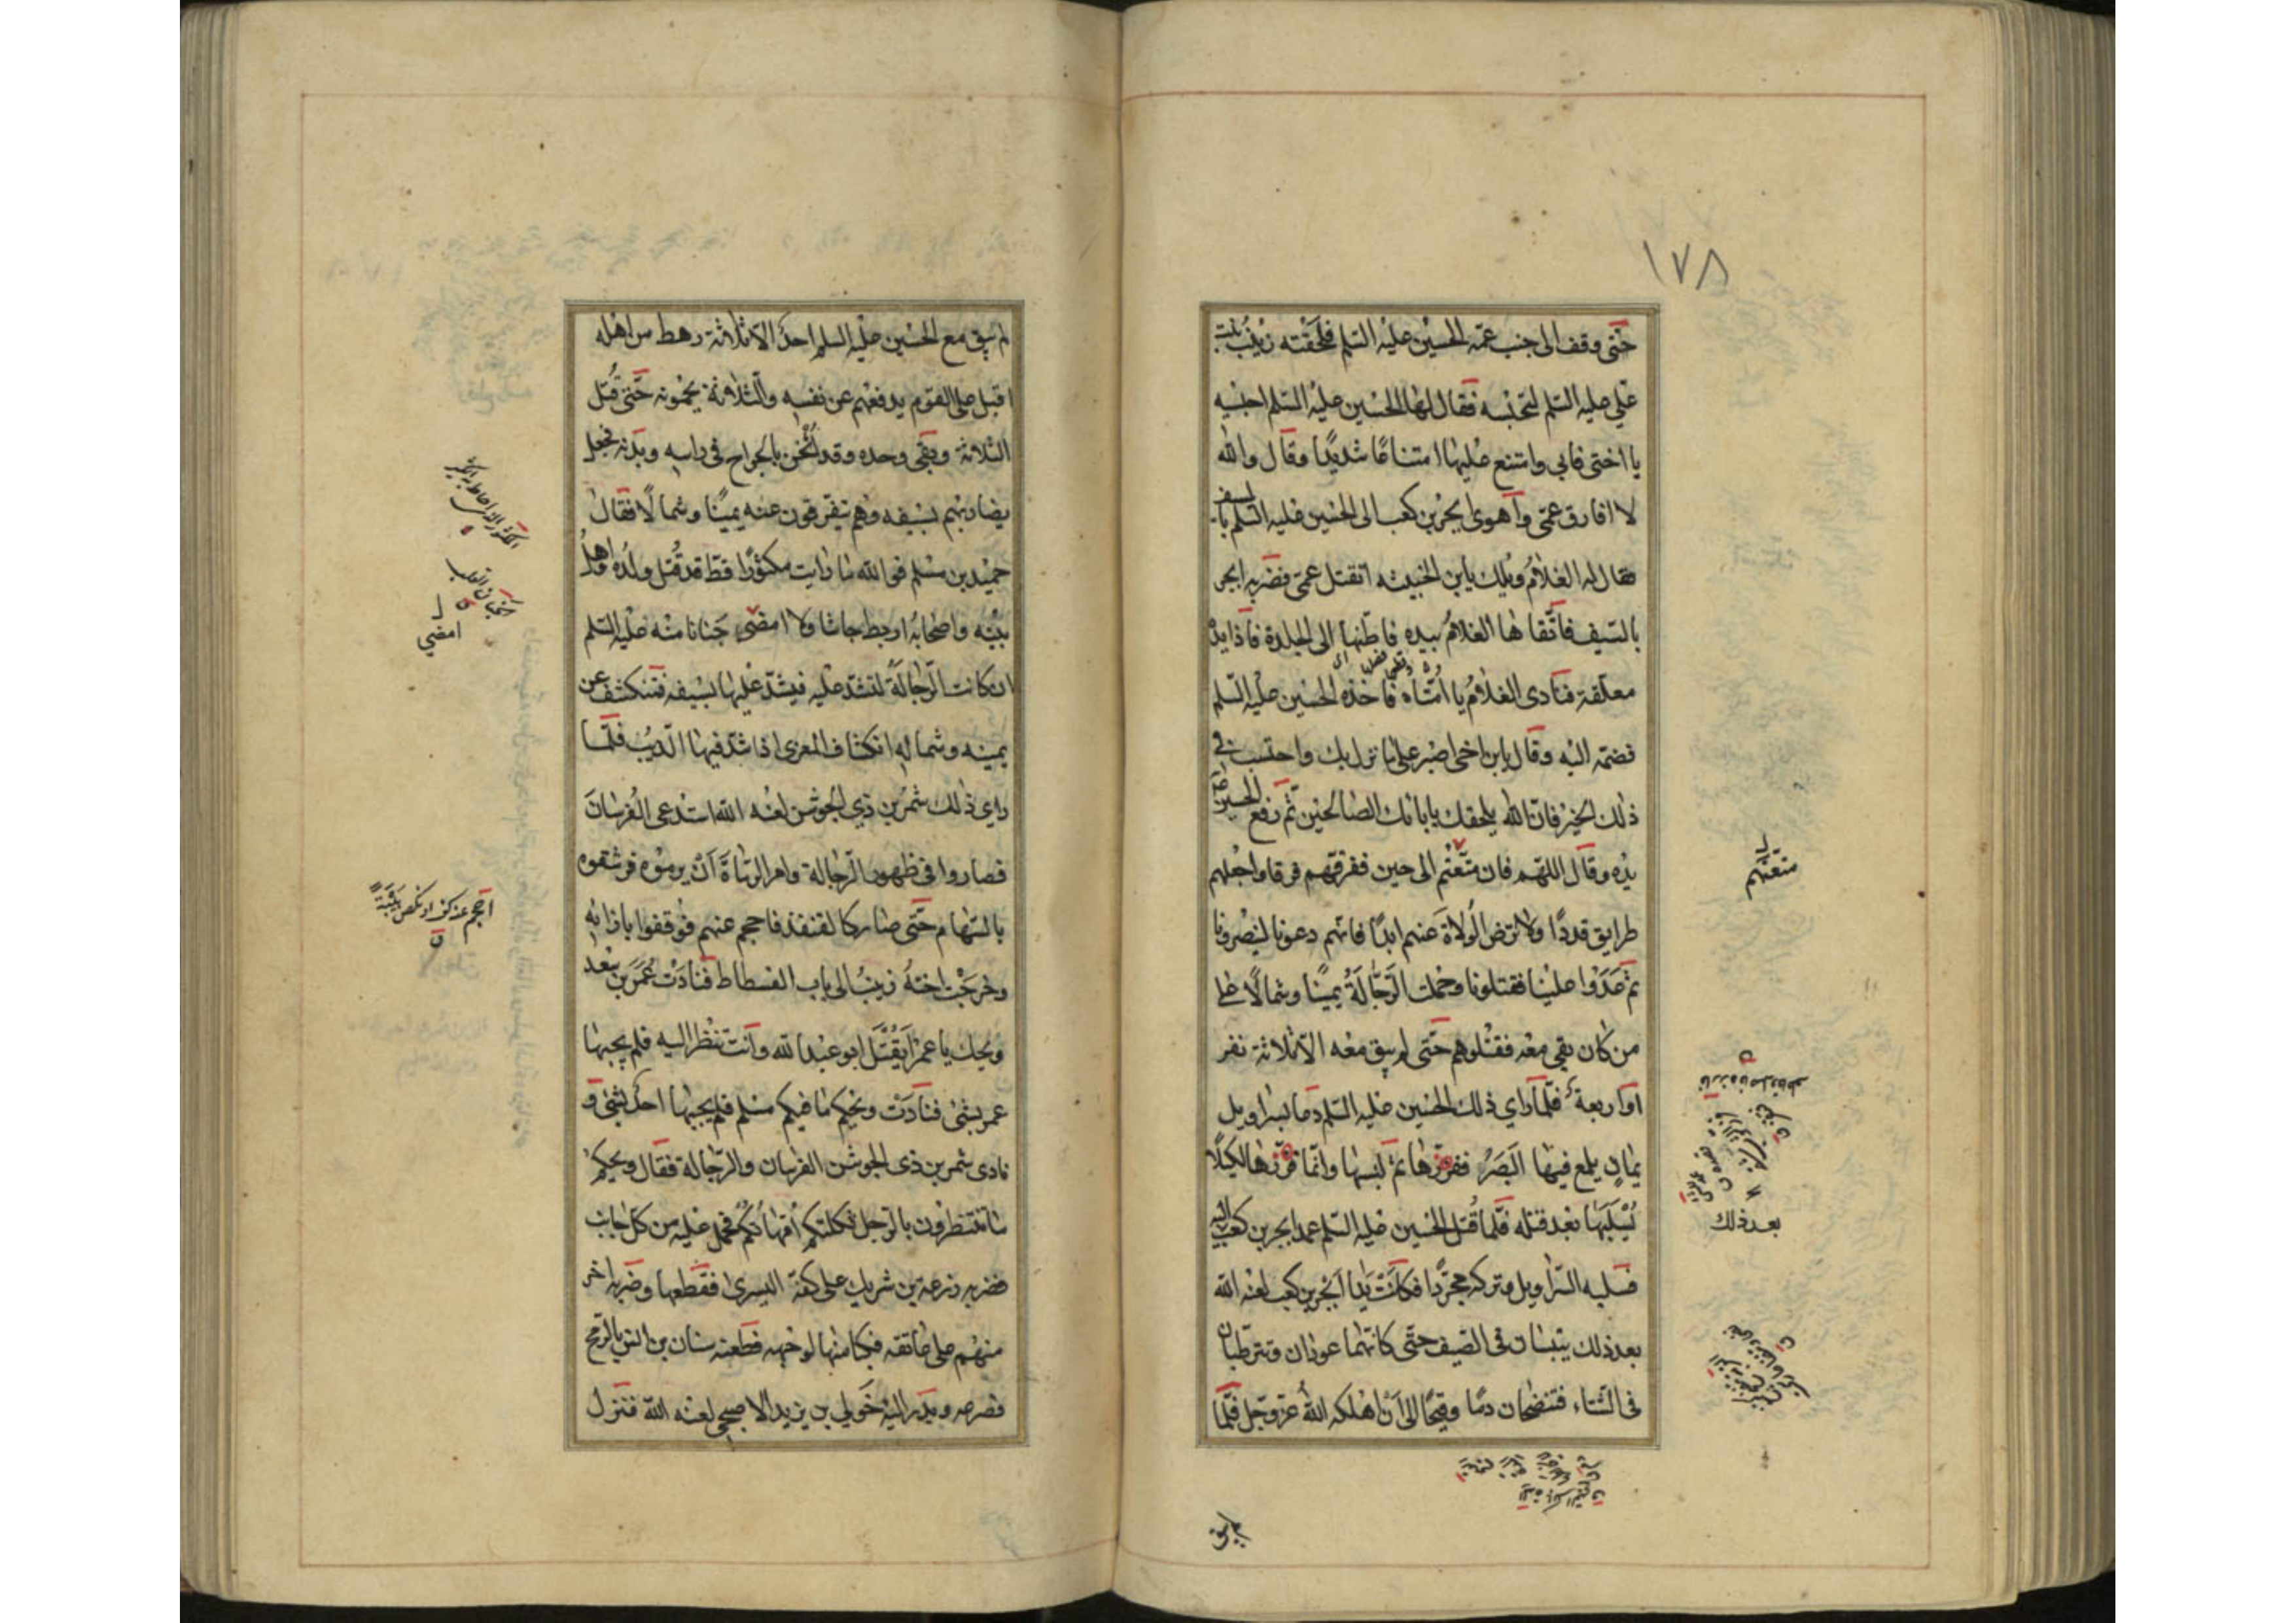 ١٧٨
حتى وقف الى جنب عمه الحسين عليه السلم فلحقته زينب بنت
علي عليه السلم لتحبسه فقال لها الحسين عليه السلم احبسيه
يا اختي فابى وامتنع عليها امتناعًا شديدًا وقال والله
لا افارق عمي واهوى ابجر بن كعب الى الحسين عليه السلم بالسيف
فقال له الغلام ويلك يا بن الخبيثه اتقتل عمي فضربه ابجر
بالسيف فاتقاها الغلام بيده فاطنها الى الجلدة فاذا يده
معلقة فنادى الغلام يا امتاه فاخذه الحسين عليه السلم
فضمه اليه وقال يابن اخي اصبر على ما نزل بك واحتسب في
ذلك الخير فان الله يلحقك بابائك الصالحين ثم رفع الحسين
يده وقال اللهم فان متعتم الى حين ففرقهم فرقا واجعلهم
طرايق قددًا ولا ترض الولاة عنهم ابدًا فانهم دعونا لينصرونا
ثم عدوا علينا فقتلونا وحملت الرجالة يمينًا وشمالًا على
من كان بقي معه فقتلوهم حتى لم يبق معه الا ثلاثة نفر
او اربعة فلما راي ذلك الحسين عليه السلم دعا بسراويل
يمان يلمع فيها البصر ففزرها ثم لبسها وانما فزرها لكيلا
يسلبها بعد قتله فلما قتل الحسين عليه السلم عمد ابجر بن كعب اليه
فسلبه السراويل وتركه مجردًا فكانت يدا ابجر بن كعب لعنه الله
بعد ذلك ييبسان في الصيف حتى كانهما عودان وتترطبان
في الشتاء فتنضحان دمًا وقيحًا الى ان اهلكه الله عز وجل فلما
متعتهم
بعد ذلك
لم يبق
لم يبق مع الحسين عليه السلم احد الا ثلاثة رهط من اهله
اقبل على القوم يدفعهم عن نفسه والثلاثة يحمونه حتى قتل
الثلاثة وبقي وحده وقد اثخن بالجراح في راسه وبدنه فجعل
يضاربهم بسيفه وهم يتفرقون عنه يمينًا وشمالًا فقال
حميد بن مسلم فوالله ما رايت مكثورًا قط قد قتل ولده واهل
بيته واصحابه اربط جاشا ولا امضى جنانا منه عليه السلم
ان كانت الرجالة لتشد عليه فيشد عليها بسيفه فتنكشف عن
يمينه وشماله انكشاف المعزى اذا شد فيها الذيب فلما
راي ذلك شمر بن ذي الجوشن لعنه الله استدعى الفرسان
فصاروا في ظهور الرجالة وامر الرماة ان يرموه فرشقوه
بالسهام حتى صار كالقنفذ فاحجم عنهم فوقفوا بازائه
وخرجت اخته زينب الى باب الفسطاط فنادت عمر بن سعد
ويحك يا عمر ايقتل ابو عبد الله وانت تنظر اليه فلم يجبها
عمر بشئ فنادت ويحكم اما فيكم مسلم فلم يجبها احد بشئ و
نادى شمر بن ذي الجوشن الفرسان والرجالة فقال ويحكم
ما تنتظرون بالرجل ثكلتكم امهاتكم فحمل عليه من كل جانب
فضربه زرعة بن شريك على كفه اليسرى فقطعها وضربه اخر
منهم على عاتقه فكبا منها لوجهه فطعنه سنان بن انس بالرمح
فصرعه وبدر اليه خولي بن يزيد الاصبحي لعنه الله فنزل
امضي